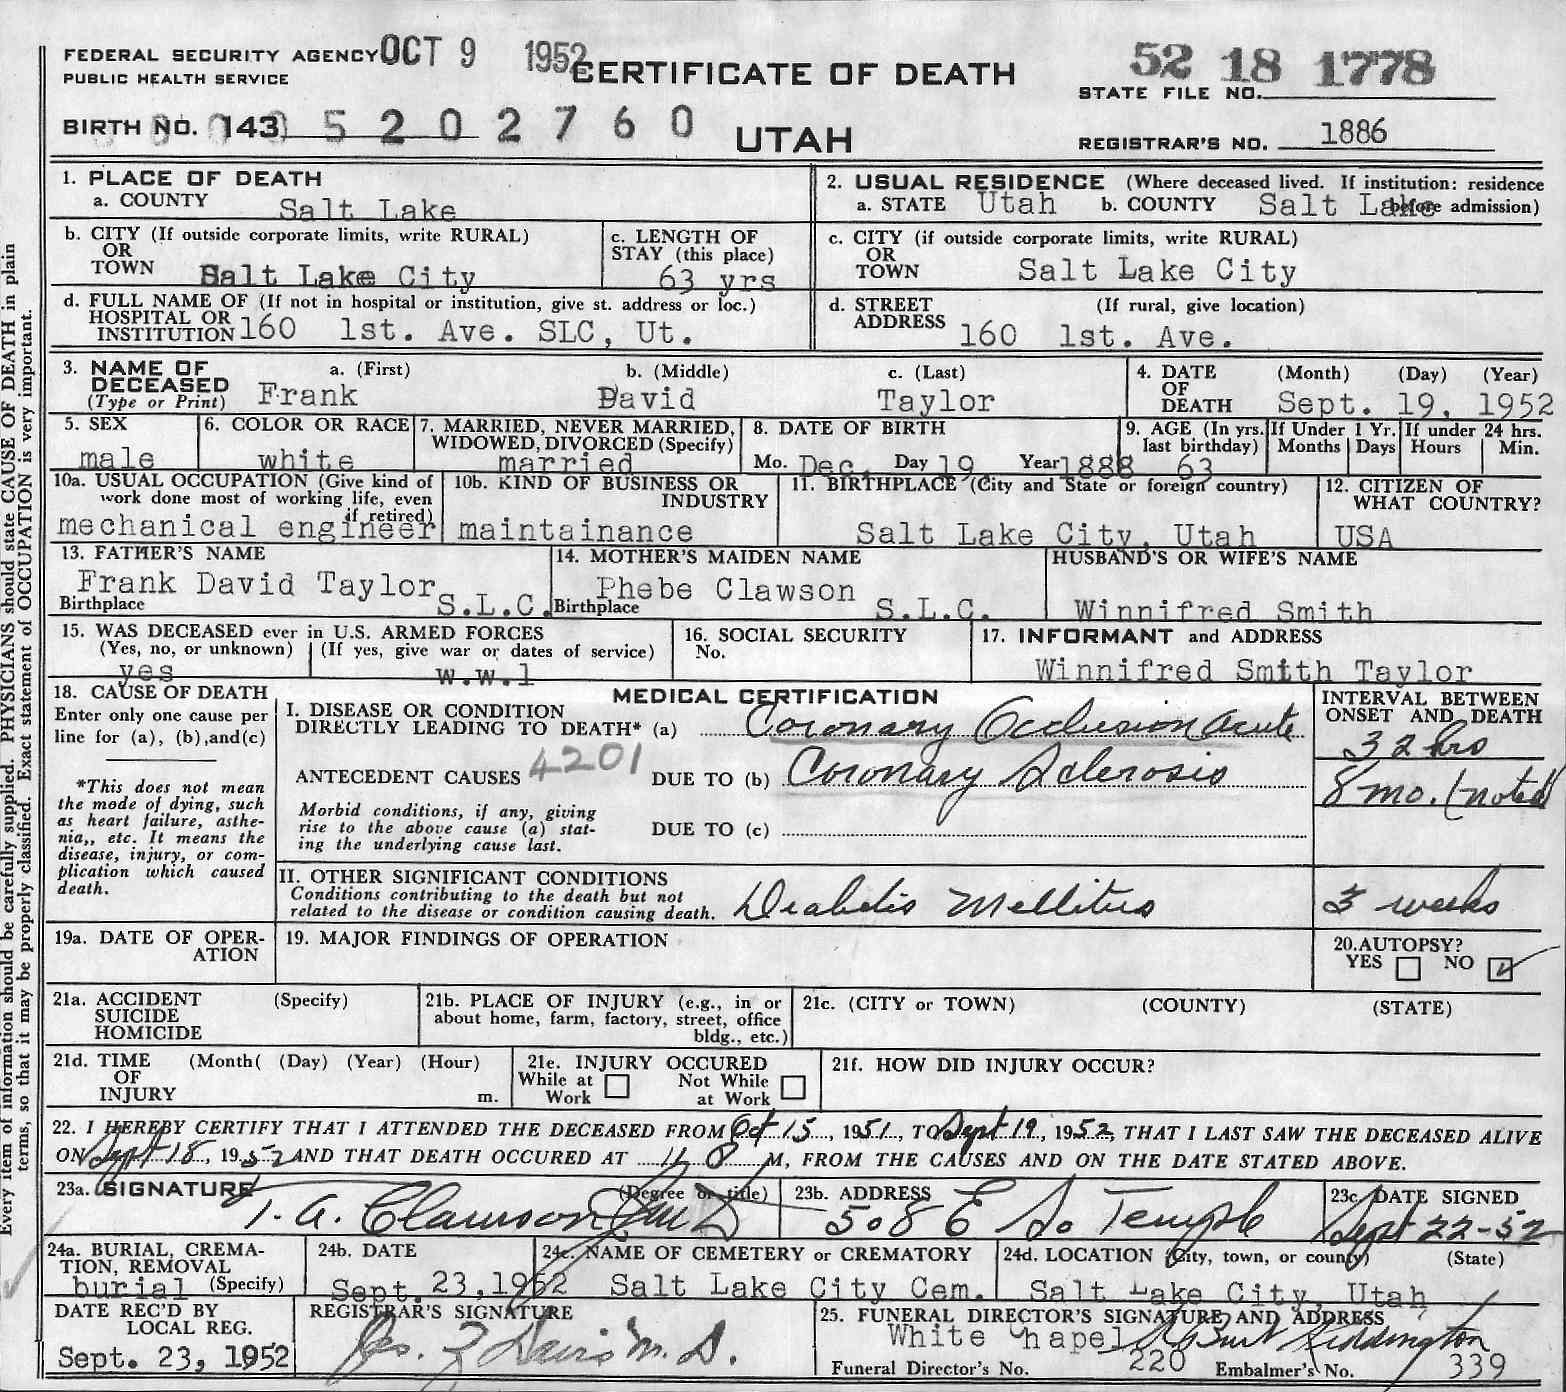 FEDERAL SECURITY AGENCY OCT 9 1952 CERTIFICATE OF DEATH 52 18 1778
PUBLIC HEALTH SERVICE STATE FILE NO.
BIRTH NO. 143 5 2 0 2 7 6 0 UTAH REGISTRAR'S NO. 1886
Every item of information should be carefully supplied. PHYSICIANS should state CAUSE OF DEATH in plain
terms, so that it may be properly classified. Exact statement of OCCUPATION is very important.
1. PLACE OF DEATH
a. COUNTY Salt Lake
2. USUAL RESIDENCE (Where deceased lived. If institution: residence
a. STATE Utah b. COUNTY Salt Lake before admission)
b. CITY (If outside corporate limits, write RURAL)
OR
TOWN Salt Lake City
c. LENGTH OF
STAY (this place)
63 yrs
c. CITY (if outside corporate limits, write RURAL)
OR
TOWN Salt Lake City
d. FULL NAME OF (If not in hospital or institution, give st. address or loc.)
HOSPITAL OR
INSTITUTION 160 1st. Ave. SLC, Ut.
d. STREET (If rural, give location)
ADDRESS 160 1st. Ave.
3. NAME OF a. (First) b. (Middle) c. (Last)
DECEASED Frank David Taylor
(Type or Print)
4. DATE (Month) (Day) (Year)
OF
DEATH Sept. 19, 1952
5. SEX
male
6. COLOR OR RACE
white
7. MARRIED, NEVER MARRIED,
WIDOWED, DIVORCED (Specify)
married
8. DATE OF BIRTH
Mo. Dec. Day 19 Year 1888
9. AGE (In yrs.
last birthday)
63
If Under 1 Yr.
Months Days
If under 24 hrs.
Hours Min.
10a. USUAL OCCUPATION (Give kind of
work done most of working life, even
if retired)
mechanical engineer
10b. KIND OF BUSINESS OR
INDUSTRY
maintainance
11. BIRTHPLACE (City and State or foreign country)
Salt Lake City, Utah
12. CITIZEN OF
WHAT COUNTRY?
USA
13. FATHER'S NAME
Frank David Taylor
Birthplace S.L.C.
14. MOTHER'S MAIDEN NAME
Phebe Clawson
Birthplace S.L.C.
HUSBAND'S OR WIFE'S NAME
Winnifred Smith
15. WAS DECEASED ever in U.S. ARMED FORCES
(Yes, no, or unknown) (If yes, give war or dates of service)
yes w.w.1
16. SOCIAL SECURITY
No.
17. INFORMANT and ADDRESS
Winnifred Smith Taylor
18. CAUSE OF DEATH
Enter only one cause per
line for (a), (b), and(c)
*This does not mean
the mode of dying, such
as heart failure, asthe-
nia,, etc. It means the
disease, injury, or com-
plication which caused
death.
MEDICAL CERTIFICATION
I. DISEASE OR CONDITION
DIRECTLY LEADING TO DEATH* (a) Coronary Occlusion acute
ANTECEDENT CAUSES 4201 DUE TO (b) Coronary Sclerosis
Morbid conditions, if any, giving
rise to the above cause (a) stat-
ing the underlying cause last.
DUE TO (c)
INTERVAL BETWEEN
ONSET AND DEATH
32 hrs
8 mo. (noted
II. OTHER SIGNIFICANT CONDITIONS
Conditions contributing to the death but not
related to the disease or condition causing death. Diabetis Mellitus
3 weeks
19a. DATE OF OPER-
ATION
19. MAJOR FINDINGS OF OPERATION
20. AUTOPSY?
YES NO
21a. ACCIDENT (Specify)
SUICIDE
HOMICIDE
21b. PLACE OF INJURY (e.g., in or
about home, farm, factory, street, office
bldg., etc.)
21c. (CITY or TOWN) (COUNTY) (STATE)
21d. TIME (Month( (Day) (Year) (Hour)
OF
INJURY m.
21e. INJURY OCCURED
While at Work Not While at Work
21f. HOW DID INJURY OCCUR?
22. I HEREBY CERTIFY THAT I ATTENDED THE DECEASED FROM Oct 15, 1951, TO Sept 19, 1952, THAT I LAST SAW THE DECEASED ALIVE
ON Sept 18, 1952 AND THAT DEATH OCCURED AT M, FROM THE CAUSES AND ON THE DATE STATED ABOVE.
23a. SIGNATURE (Degree or title)
T. A. Clawson Jr M D
23b. ADDRESS
508 E So Temple
23c. DATE SIGNED
Sept 22-52
24a. BURIAL, CREMA-
TION, REMOVAL
burial (Specify)
24b. DATE
Sept. 23, 1952
24c. NAME OF CEMETERY or CREMATORY
Salt Lake City Cem.
24d. LOCATION (City, town, or county) (State)
Salt Lake City, Utah
DATE REC'D BY
LOCAL REG.
Sept. 23, 1952
REGISTRAR'S SIGNATURE
Jas. Z Davis M.D.
25. FUNERAL DIRECTOR'S SIGNATURE AND ADDRESS
White Chapel
Funeral Director's No. 220 Embalmer's No. 339